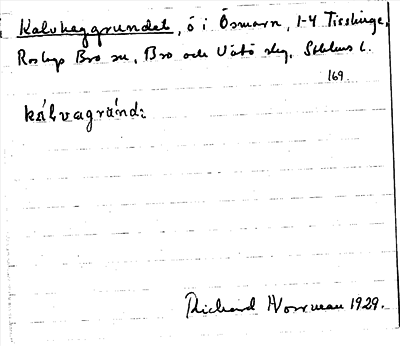 Kalvhaggrundet, ö i Ösmaren, 1-4 Tisslinge,
Roslags Bro sn, Bro och Vätö slg. Sthlms l.
169
Richard Norrman 1929.